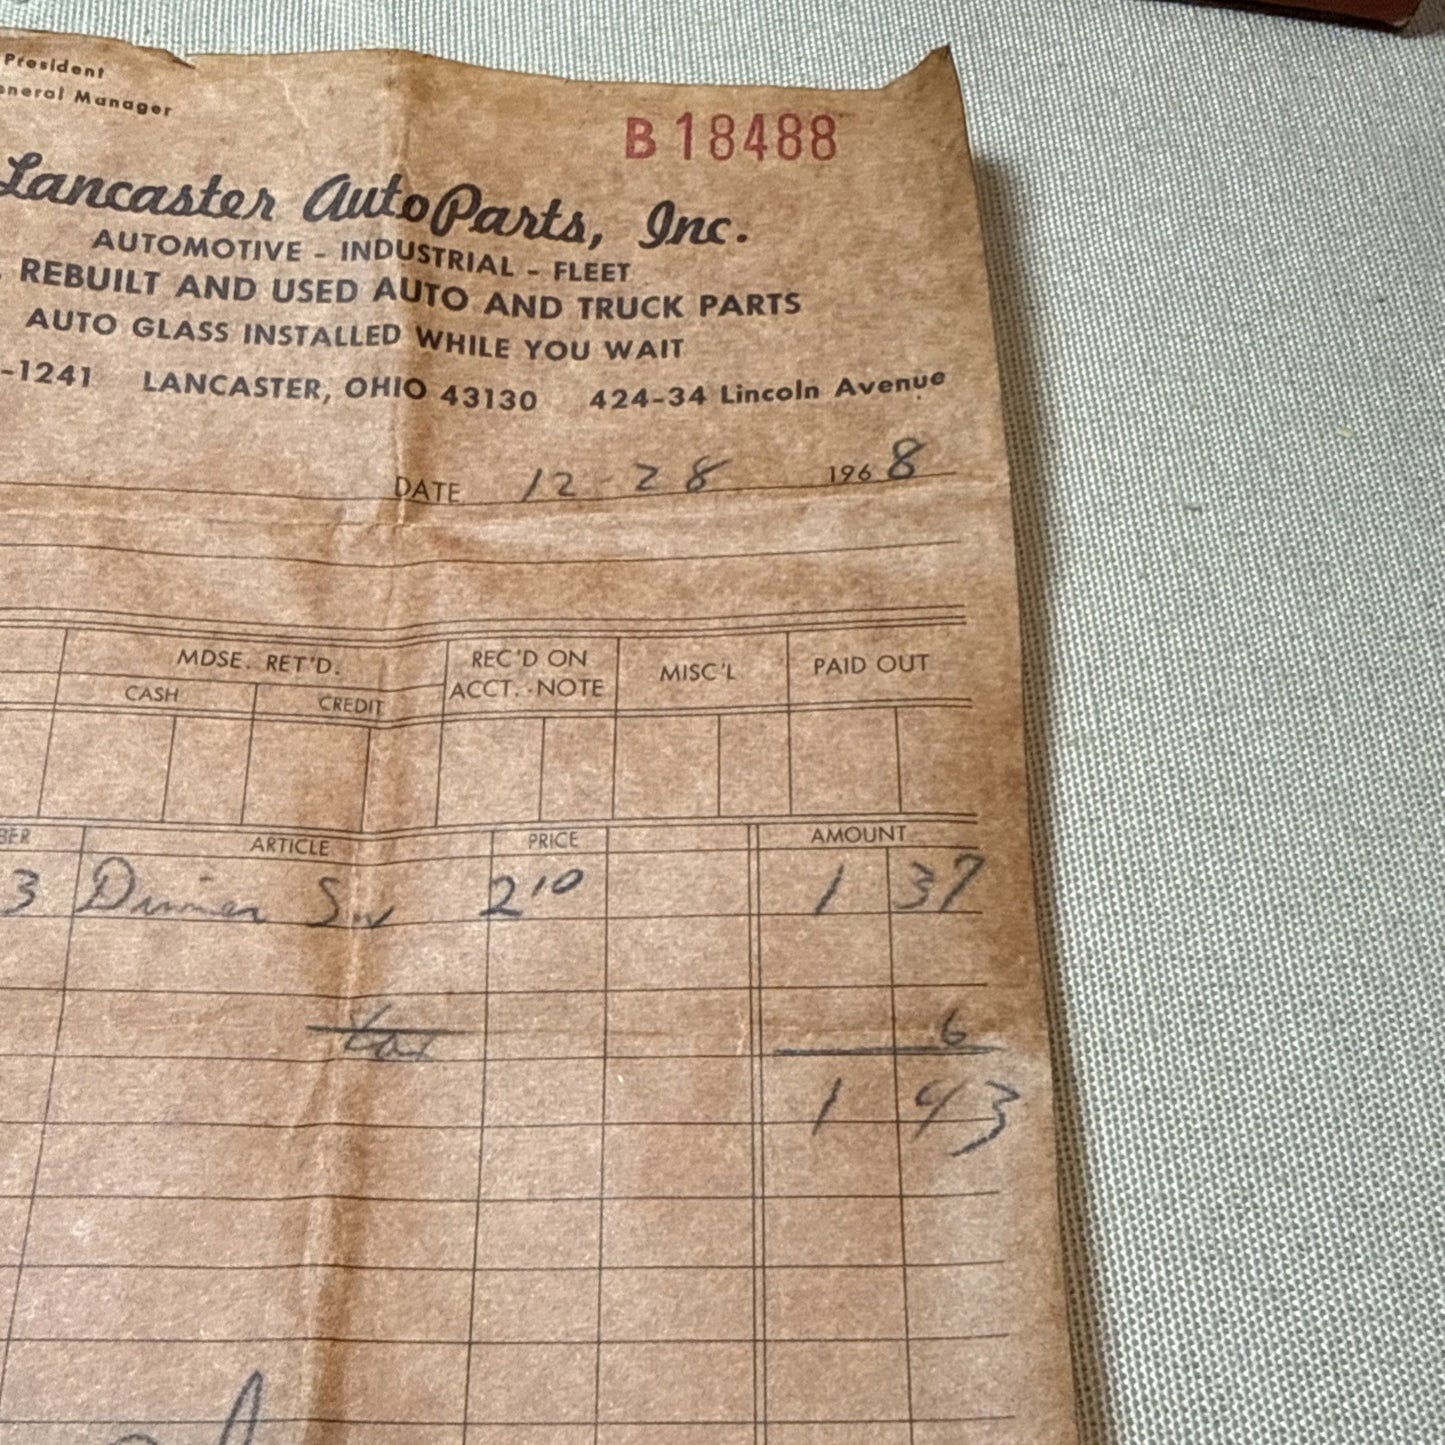 President
General Manager
B 18488
Lancaster Auto Parts, Inc.
AUTOMOTIVE - INDUSTRIAL - FLEET
REBUILT AND USED AUTO AND TRUCK PARTS
AUTO GLASS INSTALLED WHILE YOU WAIT
-1241 LANCASTER, OHIO 43130 424-34 Lincoln Avenue
DATE 12-28 1968
MDSE. RET'D. REC'D ON ACCT.-NOTE MISC'L PAID OUT
CASH CREDIT
BER ARTICLE PRICE AMOUNT
3 Dimmer Sw 2.10 1 37
tax 6
1 43